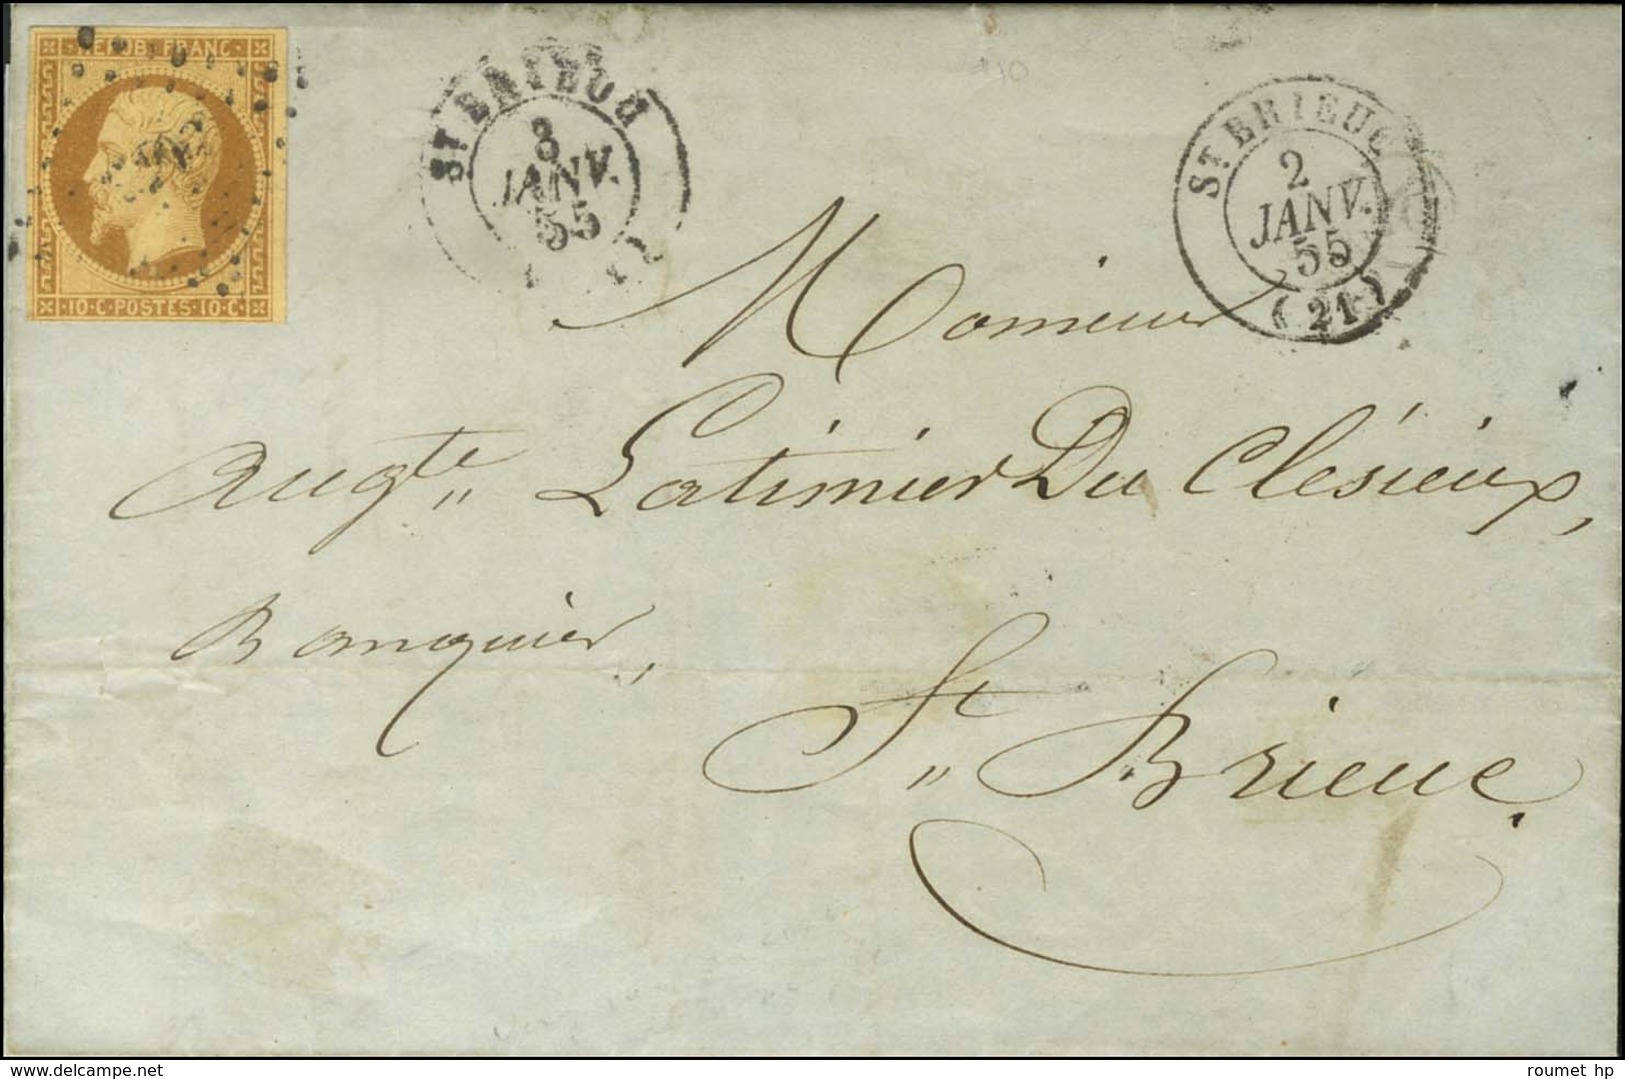 REPUB FRANC
10·C·POSTES·10·C
ST BRIEUC
3
JANV.
55
ST BRIEUC
2
JANV.
55
(21)
Monsieur
Augte Latimier Du Clésieux,
Banquier,
St Brieuc.
delcampe.net
roumet hp